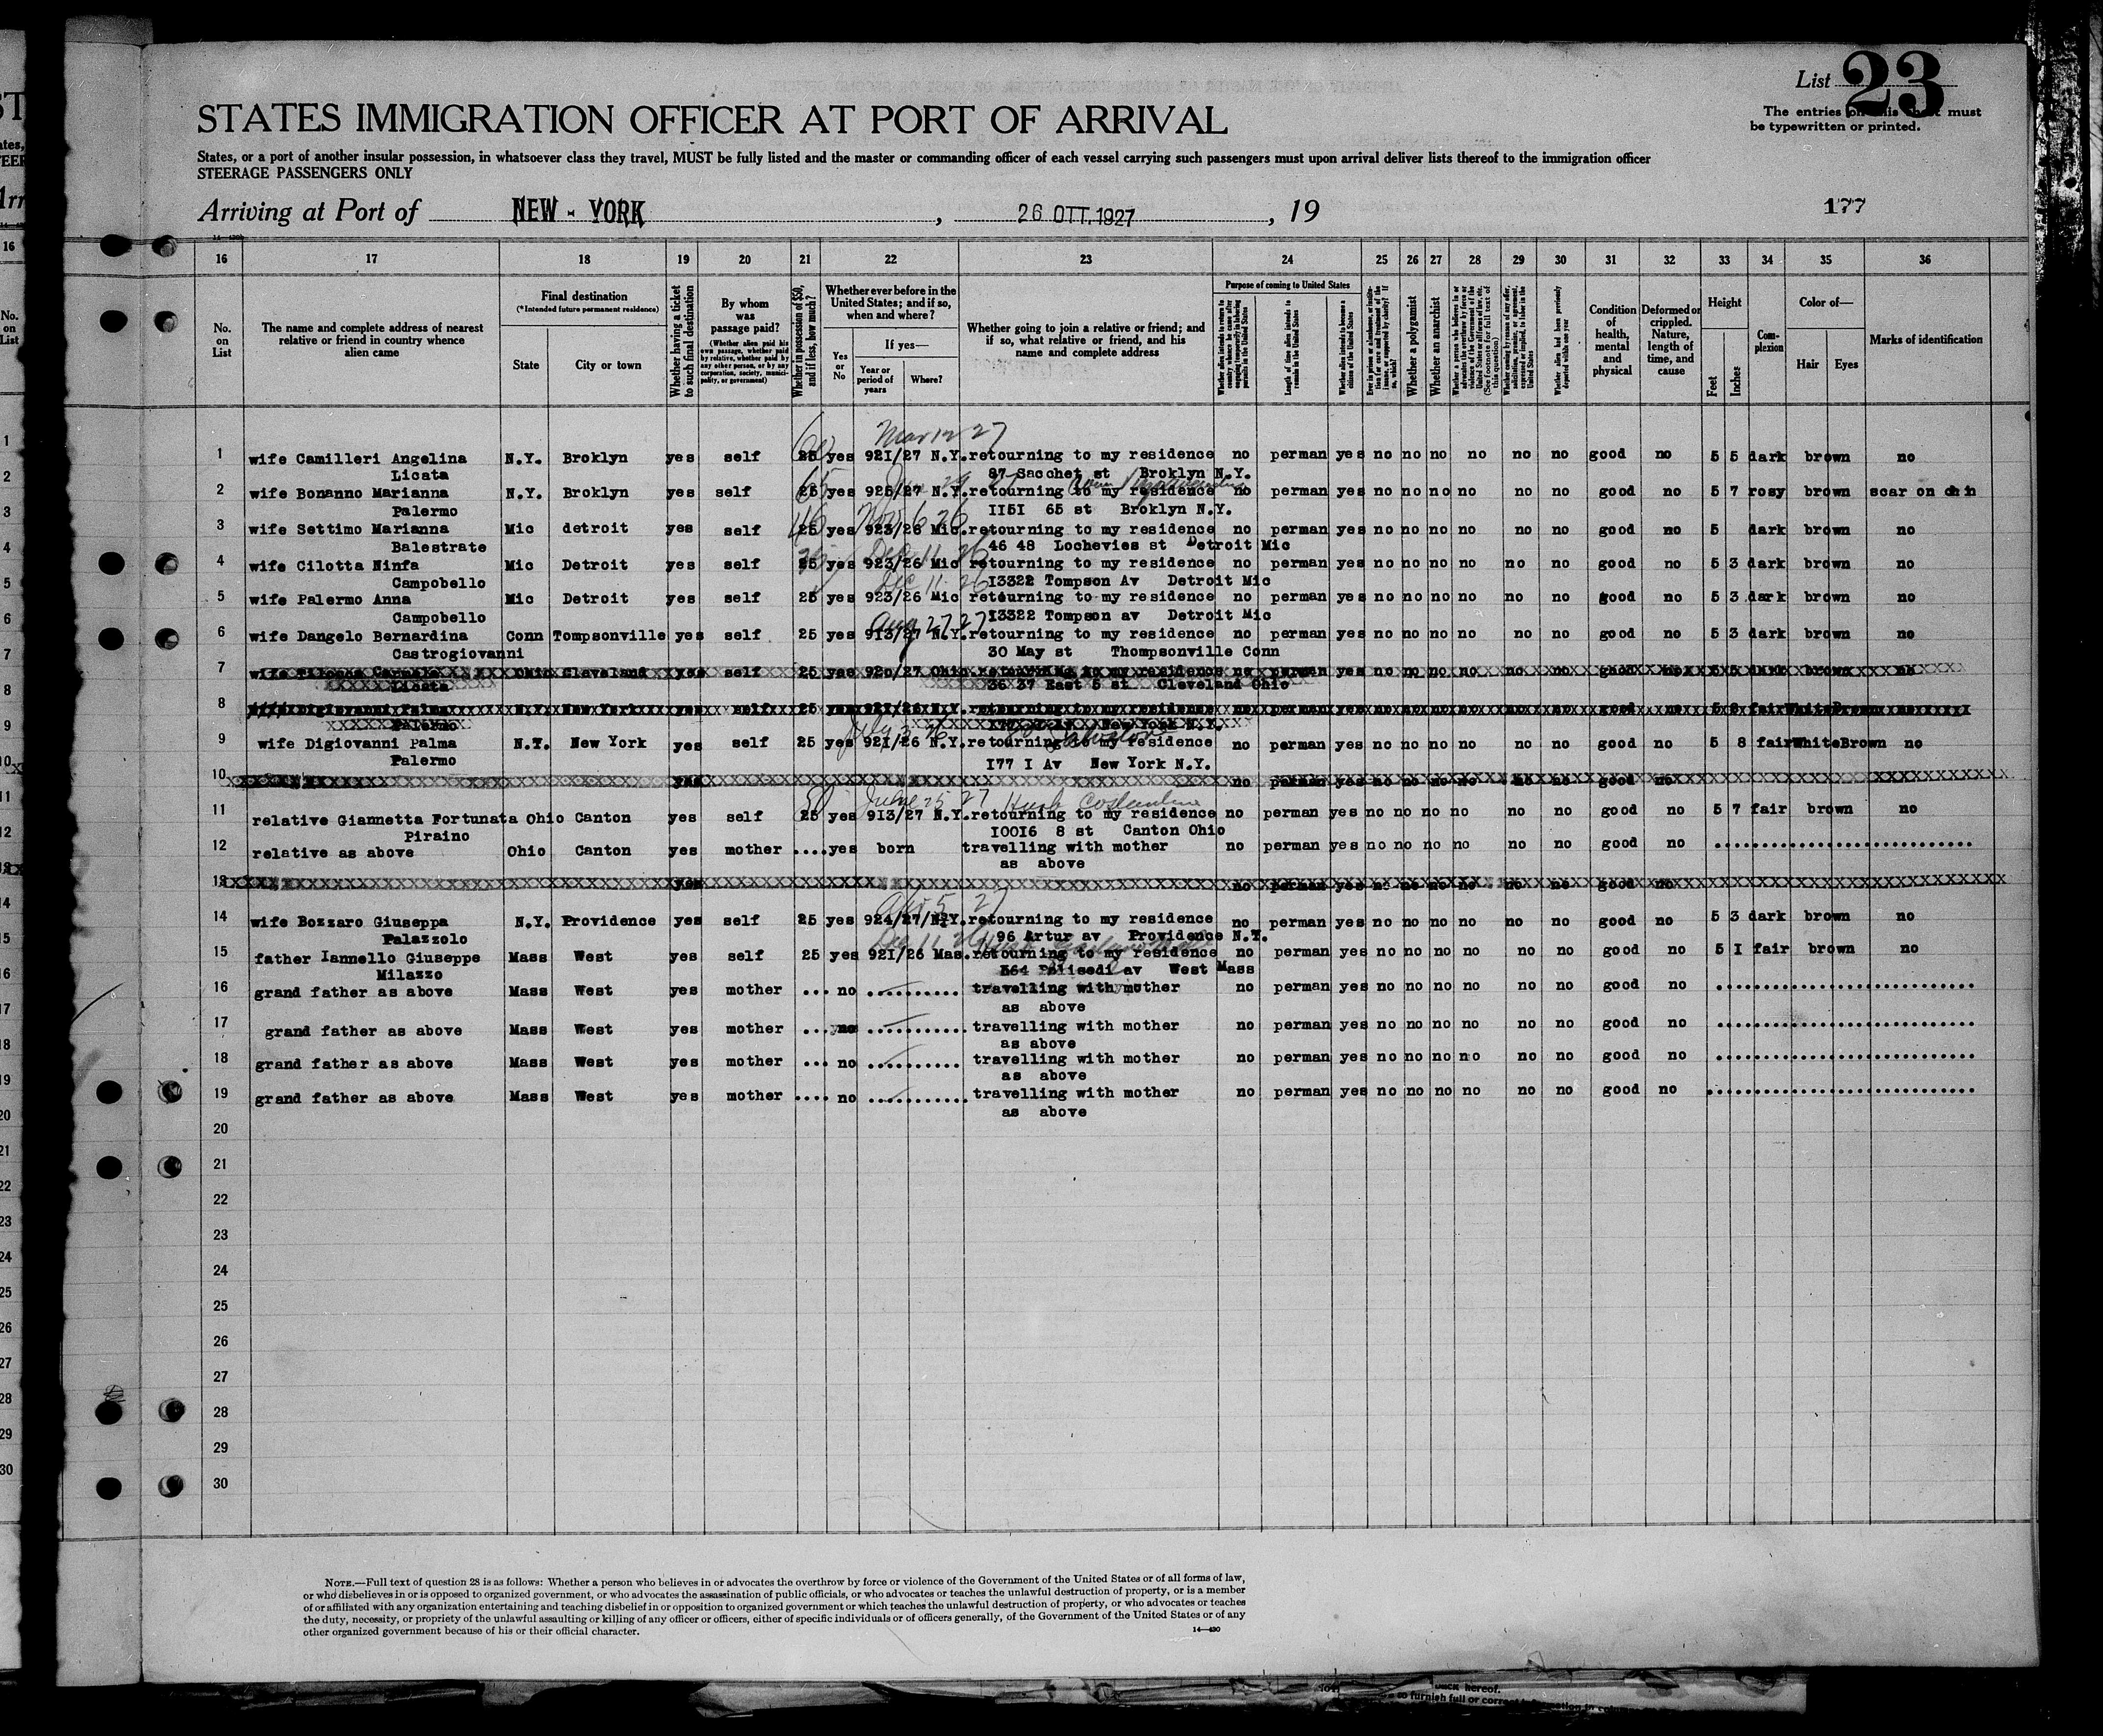 List 23
The entries on this sheet must
be typewritten or printed.
STATES IMMIGRATION OFFICER AT PORT OF ARRIVAL
States, or a port of another insular possession, in whatsoever class they travel, MUST be fully listed and the master or commanding officer of each vessel carrying such passengers must upon arrival deliver lists thereof to the immigration officer
STEERAGE PASSENGERS ONLY
Arriving at Port of NEW - YORK, 26 OTT. 1927, 19
177
16 17 18 19 20 21 22 23 24 25 26 27 28 29 30 31 32 33 34 35 36
No. on List
The name and complete address of nearest relative or friend in country whence alien came
Final destination
(*Intended future permanent residence)
State
City or town
Whether having a ticket to such final destination
By whom was passage paid?
(Whether alien paid his own passage, whether paid by relative, whether paid by any other person, or by any corporation, society, municipality, or government)
Whether in possession of $50, and if less, how much?
Whether ever before in the United States; and if so, when and where?
Yes or No
If yes—
Year or period of years
Where?
Whether going to join a relative or friend; and if so, what relative or friend, and his name and complete address
Purpose of coming to United States
Whether alien intends to return to country whence he came after engaging temporarily in laboring pursuits in the United States
Length of time alien intends to remain in the United States
Whether alien intends to become a citizen of the United States
Whether a polygamist
Whether an anarchist
Whether alien had been previously deported within one year
Condition of health, mental and physical
Deformed or crippled. Nature, length of time, and cause
Height
Feet
Inches
Complexion
Color of—
Hair
Eyes
Marks of identification
Mar 12 27
1 wife Camilleri Angelina N.Y. Broklyn yes self 25 yes 921/27 N.Y. retourning to my residence no perman yes no no no no no no good no 5 5 dark brown no
Licata 87 Sacchet st Broklyn N.Y.
2 wife Bonanno Marianna N.Y. Broklyn yes self 25 yes 925/27 N.Y. retourning to my residence no perman yes no no no no no no good no 5 7 rosy brown scar on chin
Palermo II5I 65 st Broklyn N.Y.
3 wife Settimo Marianna Mic detroit yes self 25 yes 923/26 Mic. retourning to my residence no perman yes no no no no no no good no 5 dark brown no
Balestrate 46 48 Lochevies st Detroit Mic
Dec 11 26
4 wife Cilotta Ninfa Mic Detroit yes self 25 yes 923/26 Mic retourning to my residence no perman yes no no no no no no good no 5 3 dark brown no
Campobello I3322 Tompson Av Detroit Mic
Dec 11 26
5 wife Palermo Anna Mic Detroit yes self 25 yes 923/26 Mic retourning to my residence no perman yes no no no no no no good no 5 3 dark brown no
Campobello I3322 Tompson av Detroit Mic
Aug 27 27
6 wife Dangelo Bernardina Conn Tompsonville yes self 25 yes 913/27 N.Y. retourning to my residence no perman yes no no no no no no good no 5 3 dark brown no
Castrogiovanni 30 May st Thompsonville Conn
7 wife Cleveland yes self 25 yes 920/27 Ohio. retourning to my residence no perman yes no no no no no no good no 5 5 dark brown no
Licata 36 37 East 5 st Cleveland Ohio
8 Digiovanni Palma N.Y. New York yes self 25 yes 921/26 N.Y. retourning to my residence no perman yes no no no no no no good no 5 8 fair White Brown no
Palermo New York N.Y.
July 3 26
9 wife Digiovanni Palma N.Y. New York yes self 25 yes 921/26 N.Y. retourning to my residence no perman yes no no no no no no good no 5 8 fair White Brown no
Palermo I77 I Av New York N.Y.
10 yes no perman yes no no no no no no good no
50 June 25 27 Husb Costantino
11 relative Giannetta Fortunata Ohio Canton yes self 25 yes 913/27 N.Y. retourning to my residence no perman yes no no no no no no good no 5 7 fair brown no
Piraino I00I6 8 st Canton Ohio
12 relative as above Ohio Canton yes mother .... yes born travelling with mother no perman yes no no no no no no good no
as above
13 yes no perman yes no no no no no no good no
14 wife Bozzaro Giuseppa N.Y. Providence yes self 25 yes 924/27/N.Y. retourning to my residence no perman yes no no no no no no good no 5 3 dark brown no
Palazzolo 96 Artur av Providence N.Y.
Dec 11 26
15 father Iannello Giuseppe Mass West yes self 25 yes 921/26 Mas. retourning to my residence no perman yes no no no no no no good no 5 I fair brown no
Milazzo 364 Palisedi av West Mass
16 grand father as above Mass West yes mother ... no .......... travelling with mother no perman yes no no no no no no good no
as above
17 grand father as above Mass West yes mother ... no .......... travelling with mother no perman yes no no no no no no good no
as above
18 grand father as above Mass West yes mother ... no .......... travelling with mother no perman yes no no no no no no good no
as above
19 grand father as above Mass West yes mother .... no .......... travelling with mother no perman yes no no no no no no good no
as above
20
21
22
23
24
25
26
27
28
29
30
NOTE.—Full text of question 28 is as follows: Whether a person who believes in or advocates the overthrow by force or violence of the Government of the United States or of all forms of law,
or who disbelieves in or is opposed to organized government, or who advocates the assassination of public officials, or who advocates or teaches the unlawful destruction of property, or is a member
of or affiliated with any organization entertaining and teaching disbelief in or opposition to organized government or which teaches the unlawful destruction of property, or who advocates or teaches
the duty, necessity, or propriety of the unlawful assaulting or killing of any officer or officers, either of specific individuals or of officers generally, of the Government of the United States or of any
other organized government because of his or their official character.
14—430